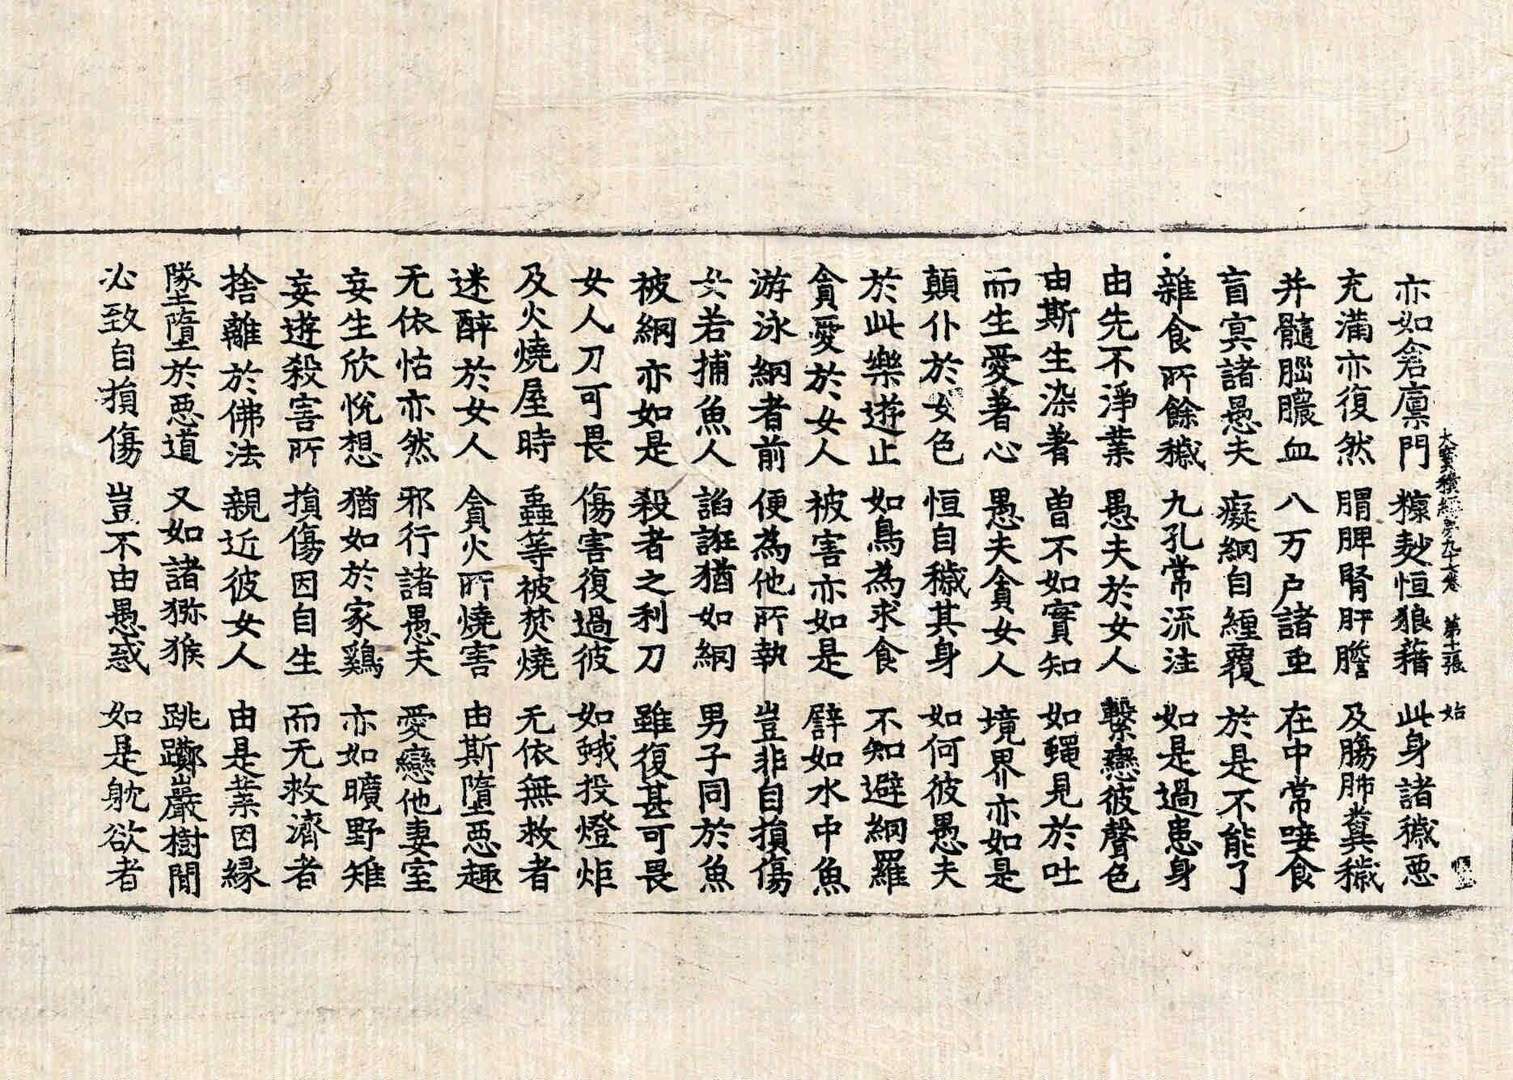 大寶積經卷九十七卷 第十一張 始
亦如倉廩門 糠麨恒狼藉 此身諸穢惡
充滿亦復然 䐜脾腎肝膽 及腸肺糞穢
并髓腦膿血 八万戶諸虫 在中常唼食
盲冥諸愚夫 癡網自纏覆 於是不能了
雜食所餘穢 九孔常流注 如是過患身
由先不淨業 愚夫於女人 繫戀彼聲色
由斯生染著 曾不如實知 如蠅見於吐
而生愛著心 愚夫貪女人 境界亦如是
顛仆於女色 恒自穢其身 如何彼愚夫
於此樂遊止 如鳥為求食 不知避網羅
貪愛於女人 被害亦如是 譬如水中魚
游泳網者前 便為他所執 豈非自損傷
女若捕魚人 諂誑猶如網 男子同於魚
被網亦如是 殺者之利刀 雖復甚可畏
女人刀可畏 傷害復過彼 如蛾投燈炬
及火燒屋時 蟲等被焚燒 无依無救者
迷醉於女人 貪火所燒害 由斯墮惡趣
无依怙亦然 邪行諸愚夫 愛戀他妻室
妄生欣悅想 猶如於家鷄 亦如曠野雉
妄遊殺害所 損傷因自生 而无救濟者
捨離於佛法 親近彼女人 由是業因緣
墜墮於惡道 又如諸獼猴 跳躑巖樹間
必致自損傷 豈不由愚惑 如是躭欲者